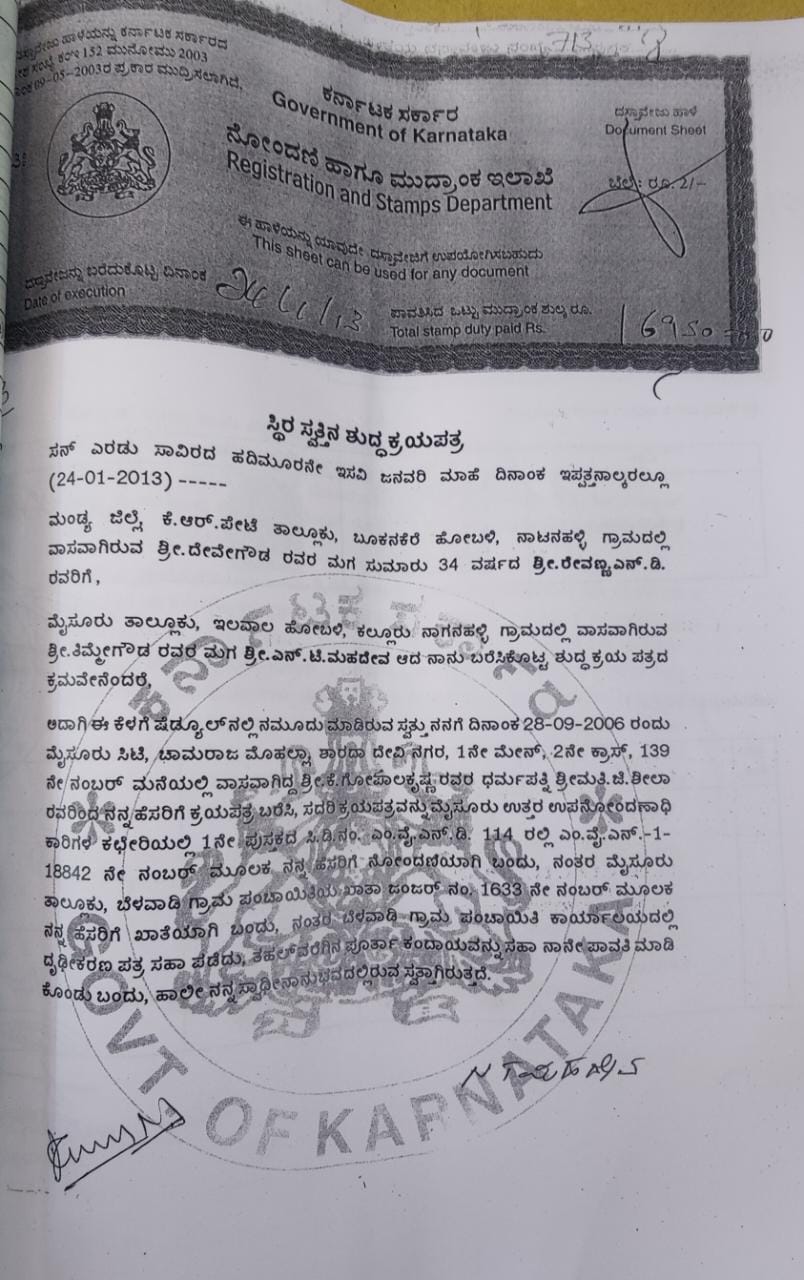 ದಸ್ತಾವೇಜು ಹಾಳೆಯನ್ನು ಕರ್ನಾಟಕ ಸರ್ಕಾರದ
152 ಮುನೋಮು 2003
09-05-2003ರ ಪ್ರಕಾರ ಮುದ್ರಿಸಲಾಗಿದೆ.
ಕರ್ನಾಟಕ ಸರ್ಕಾರ
Government of Karnataka
ದಸ್ತಾವೇಜು ಹಾಳೆ
Document Sheet
ನೋಂದಣಿ ಹಾಗೂ ಮುದ್ರಾಂಕ ಇಲಾಖೆ
Registration and Stamps Department
ಬೆಲೆ: ರೂ. 2/-
ಈ ಹಾಳೆಯನ್ನು ಯಾವುದೇ ದಸ್ತಾವೇಜಿಗೆ ಉಪಯೋಗಿಸಬಹುದು
This sheet can be used for any document
ದಸ್ತಾವೇಜನ್ನು ಬರೆದುಕೊಟ್ಟ ದಿನಾಂಕ
Date of execution 24/1/13
ಪಾವತಿಸಿದ ಒಟ್ಟು ಮುದ್ರಾಂಕ ಶುಲ್ಕ ರೂ.
Total stamp duty paid Rs. 16950
ಸ್ಥಿರ ಸ್ವತ್ತಿನ ಶುದ್ಧ ಕ್ರಯಪತ್ರ
ಸನ್ ಎರಡು ಸಾವಿರದ ಹದಿಮೂರನೇ ಇಸವಿ ಜನವರಿ ಮಾಹೆ ದಿನಾಂಕ ಇಪ್ಪತ್ತನಾಲ್ಕರಲ್ಲೂ
(24-01-2013) -----
ಮಂಡ್ಯ ಜಿಲ್ಲೆ ಕೆ.ಆರ್.ಪೇಟೆ ತಾಲ್ಲೂಕು, ಬೂಕನಕೆರೆ ಹೋಬಳಿ, ನಾಟನಹಳ್ಳಿ ಗ್ರಾಮದಲ್ಲಿ
ವಾಸವಾಗಿರುವ ಶ್ರೀ.ದೇವೇಗೌಡ ರವರ ಮಗ ಸುಮಾರು 34 ವರ್ಷದ ಶ್ರೀ.ರೇವಣ್ಣ.ಎನ್.ಡಿ.
ರವರಿಗೆ,
ಮೈಸೂರು ತಾಲ್ಲೂಕು, ಇಲವಾಲ ಹೋಬಳಿ, ಕಲ್ಲೂರು ನಾಗನಹಳ್ಳಿ ಗ್ರಾಮದಲ್ಲಿ ವಾಸವಾಗಿರುವ
ಶ್ರೀ.ತಿಮ್ಮೇಗೌಡ ರವರ ಮಗ ಶ್ರೀ.ಎನ್.ಟಿ.ಮಹದೇವ ಆದ ನಾನು ಬರೆಸಿಕೊಟ್ಟ ಶುದ್ಧ ಕ್ರಯ ಪತ್ರದ
ಕ್ರಮವೇನೆಂದರೆ,
ಅದಾಗಿ ಈ ಕೆಳಗೆ ಷೆಡ್ಯೂಲ್‌ನಲ್ಲಿ ನಮೂದು ಮಾಡಿರುವ ಸ್ವತ್ತು ನನಗೆ ದಿನಾಂಕ 28-09-2006 ರಂದು
ಮೈಸೂರು ಸಿಟಿ, ಚಾಮರಾಜ ಮೊಹಲ್ಲಾ, ಶಾರದಾ ದೇವಿ ನಗರ, 1ನೇ ಮೇನ್, 2ನೇ ಕ್ರಾಸ್, 139
ನೇ ನಂಬರ್ ಮನೆಯಲ್ಲಿ ವಾಸವಾಗಿದ್ದ ಶ್ರೀ.ಕೆ.ಗೋಪಾಲಕೃಷ್ಣ ರವರ ಧರ್ಮಪತ್ನಿ ಶ್ರೀಮತಿ.ಟಿ.ಶೀಲಾ
ರವರಿಂದ ನನ್ನ ಹೆಸರಿಗೆ ಕ್ರಯಪತ್ರ ಬರೆಸಿ, ಸದರಿ ಕ್ರಯಪತ್ರವನ್ನು ಮೈಸೂರು ಉತ್ತರ ಉಪನೋಂದಣಾಧಿ
ಕಾರಿಗಳ ಕಛೇರಿಯಲ್ಲಿ 1ನೇ ಪುಸ್ತಕದ ಸಿ.ಡಿ.ನಂ. ಎಂ.ವೈ.ಎನ್.ಡಿ. 114 ರಲ್ಲಿ ಎಂ.ವೈ.ಎನ್.-1-
18842 ನೇ ನಂಬರ್ ಮೂಲಕ ನನ್ನ ಹೆಸರಿಗೆ ನೋಂದಣಿಯಾಗಿ ಬಂದು, ನಂತರ ಮೈಸೂರು
ತಾಲ್ಲೂಕು, ಬೆಳವಾಡಿ ಗ್ರಾಮ ಪಂಚಾಯಿತಿಯ ಖಾತಾ ಜಂಜರ್ ನಂ. 1633 ನೇ ನಂಬರ್ ಮೂಲಕ
ನನ್ನ ಹೆಸರಿಗೆ ಖಾತೆಯಾಗಿ ಬಂದು, ನಂತರ ಬೆಳವಾಡಿ ಗ್ರಾಮ ಪಂಚಾಯಿತಿ ಕಾರ್ಯಾಲಯದಲ್ಲಿ
ದೃಢೀಕರಣ ಪತ್ರ ಸಹಾ ಪಡೆದು, ತಹಲ್‌ವರೆಗಿನ ಪೂರ್ತಾ ಕಂದಾಯವನ್ನು ಸಹಾ ನಾನೇ ಪಾವತಿ ಮಾಡಿ
ಕೊಂಡು ಬಂದು, ಹಾಲೀ ನನ್ನ ಸ್ವಾಧೀನಾನುಭವದಲ್ಲಿರುವ ಸ್ವತ್ತಾಗಿರುತ್ತದೆ.
GOVT OF KARNATAKA